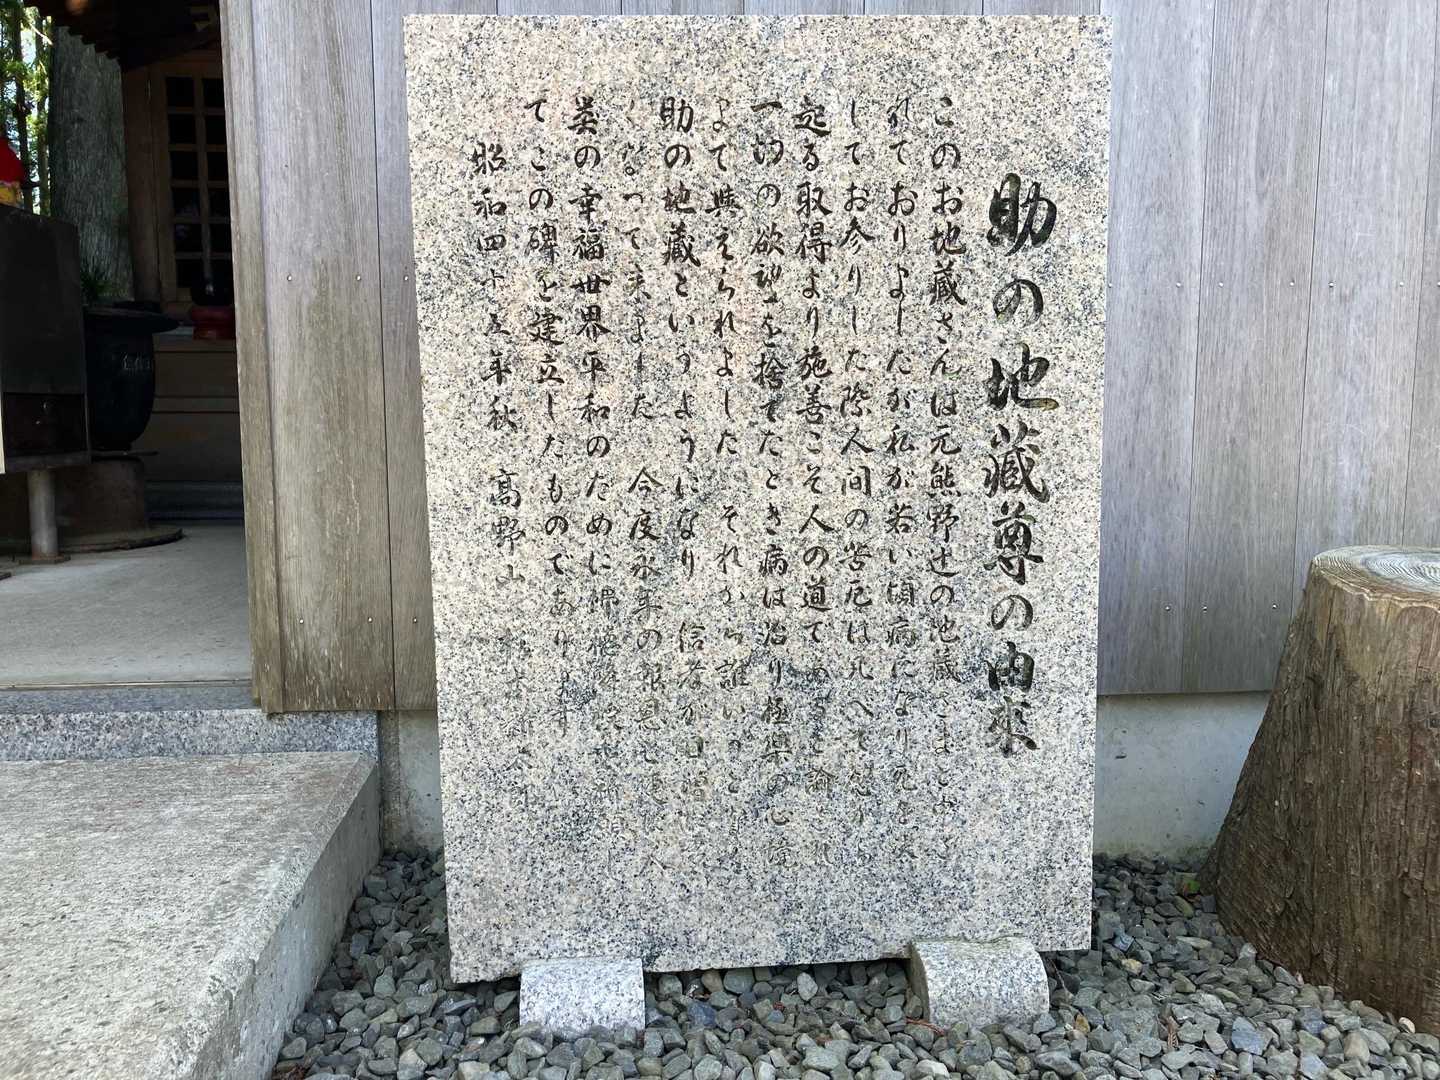 助の地蔵尊の由来
このお地蔵さんは元熊野辻の地蔵さまとよば
れておりましたが私が若い頃病になり死を
してお参りした際人間の苦厄は凡べて
起る取得より施善こそ人の道である
一切の欲望を捨てたとき病は治り極楽の心境
まで與えられましたそれから誰いうと
助の地蔵というようになり信者が日増
くなって来ました今度永年の報恩と
英の幸福世界平和のために
てこの碑を建立したものであります
昭和四十五年秋 高野山